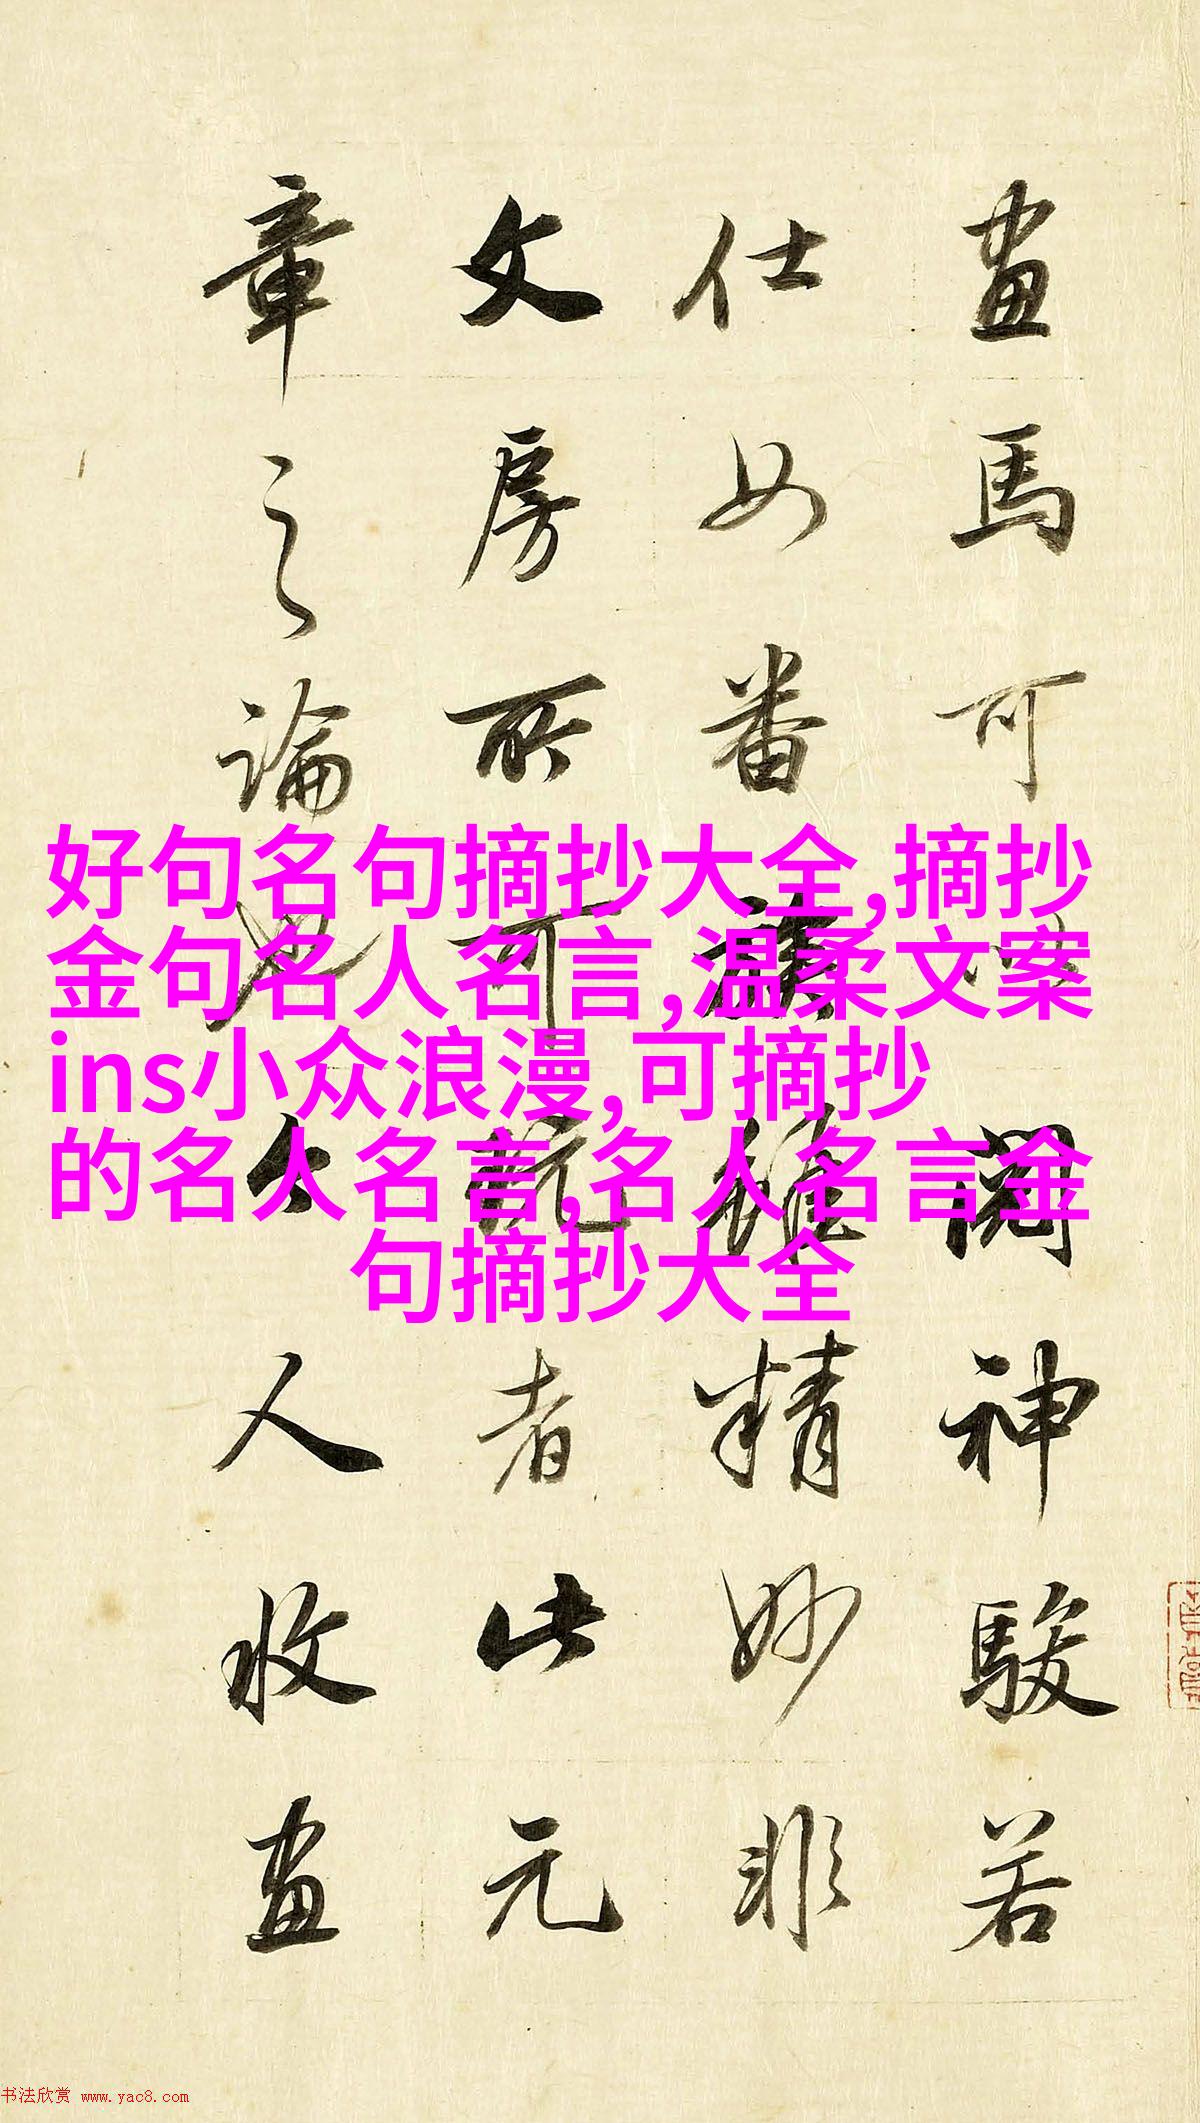 畫馬可以閱神駿若
仕女番族雖精妙非
文房所可玩者此元
章之論也今人收畫
好句名句摘抄大全,摘抄
金句名人名言,温柔文案
ins小众浪漫,可摘抄
的名人名言,名人名言金
句摘抄大全
书法欣赏 www.yac8.com